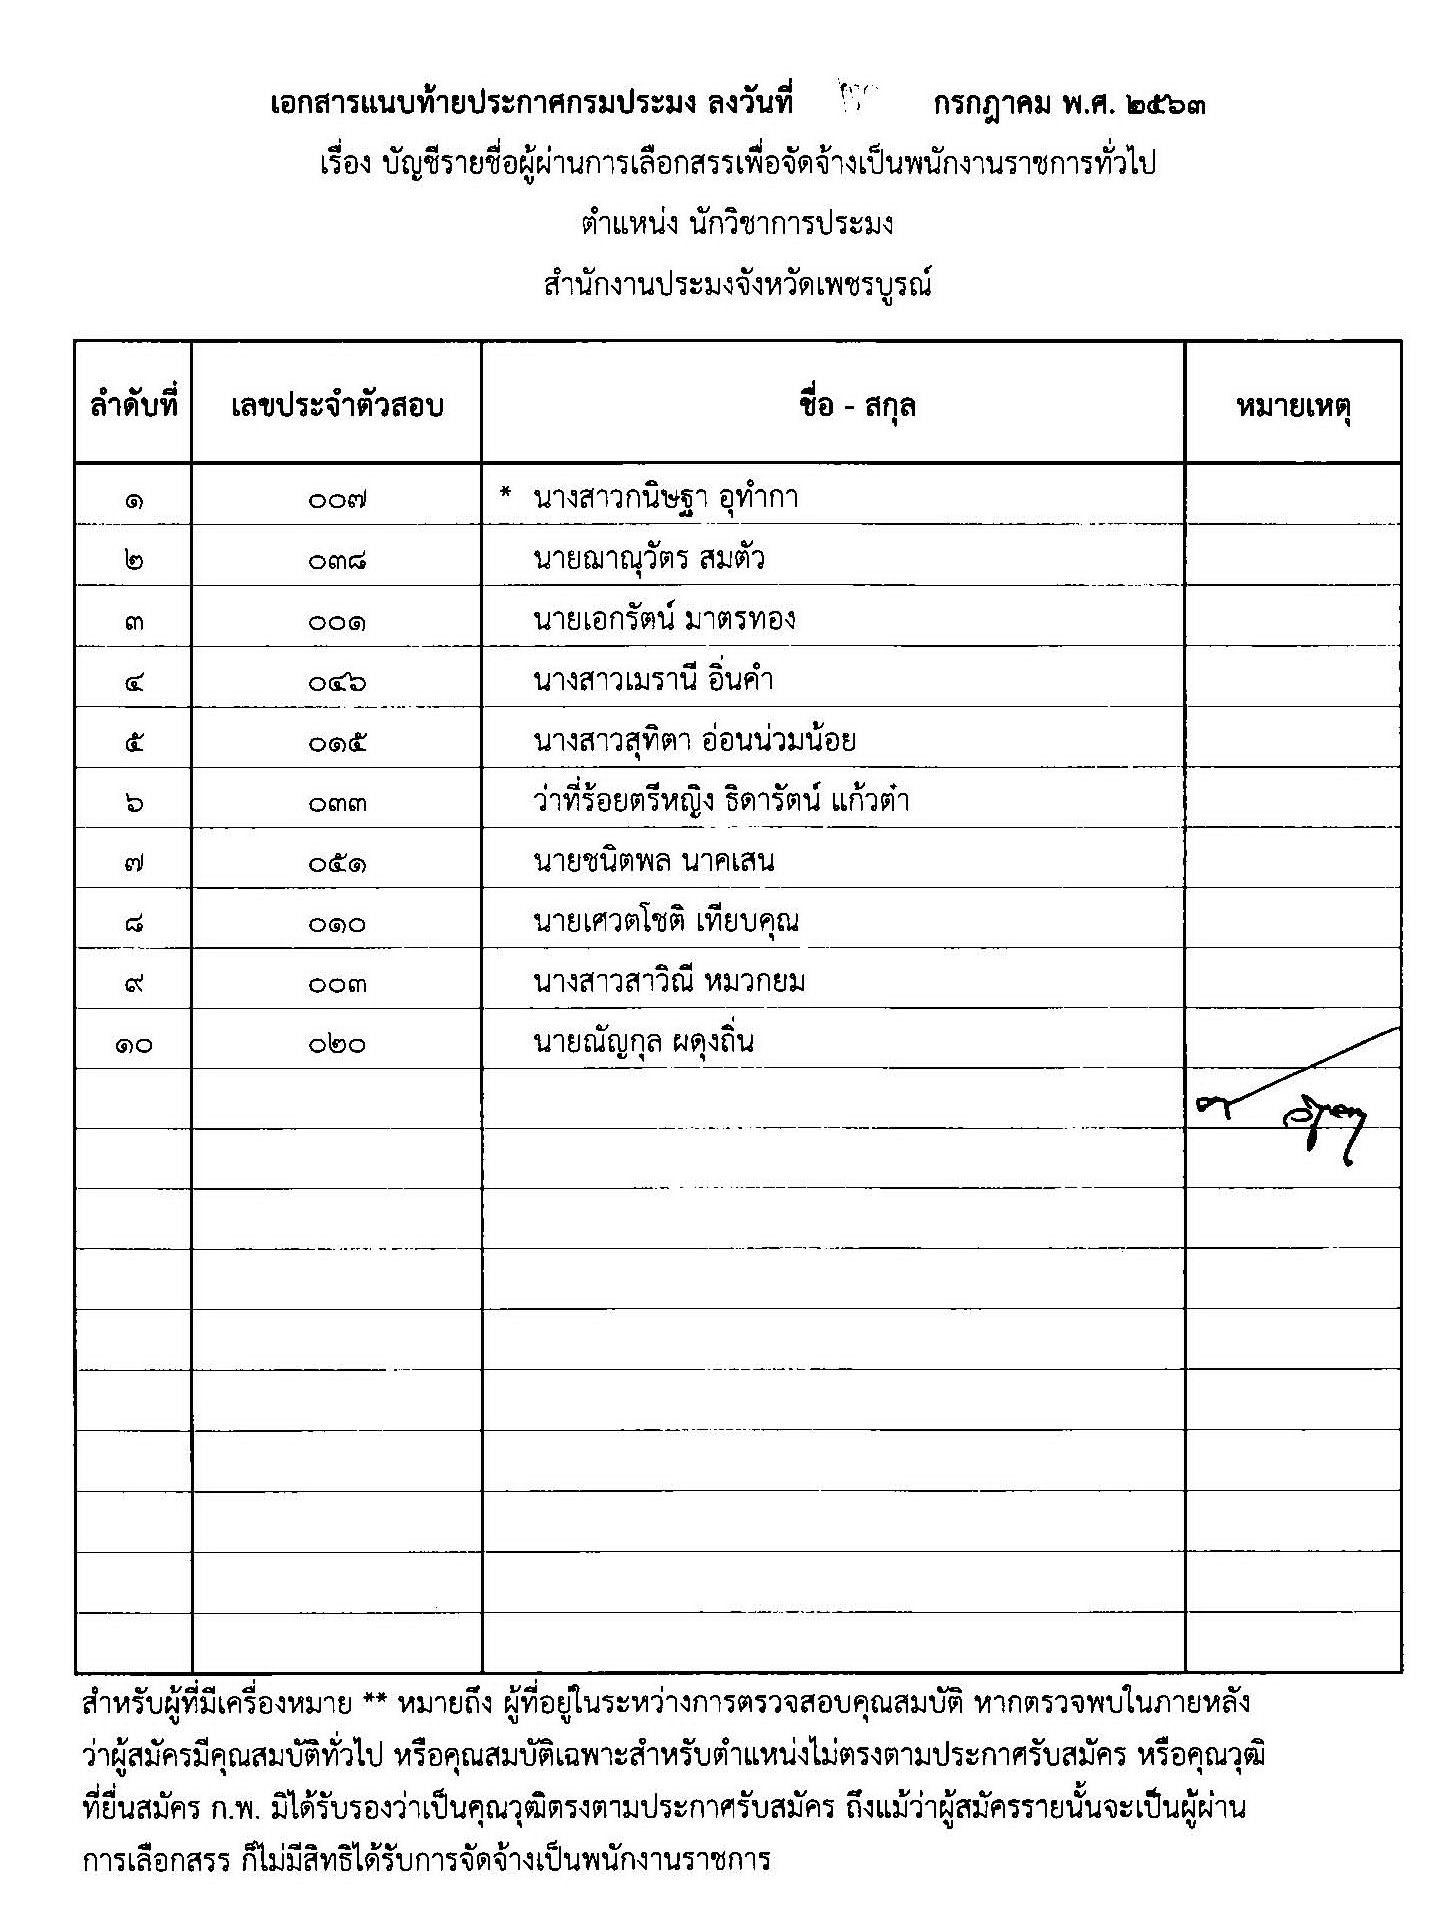 เอกสารแนบท้ายประกาศกรมประมง ลงวันที่ กรกฎาคม พ.ศ. ๒๕๖๓
เรื่อง บัญชีรายชื่อผู้ผ่านการเลือกสรรเพื่อจัดจ้างเป็นพนักงานราชการทั่วไป
ตำแหน่ง นักวิชาการประมง
สำนักงานประมงจังหวัดเพชรบูรณ์
ลำดับที่ เลขประจำตัวสอบ ชื่อ - สกุล หมายเหตุ
๑ ๐๐๗ * นางสาวกนิษฐา อุทำกา
๒ ๐๓๘ นายฌาณุวัตร สมตัว
๓ ๐๐๑ นายเอกรัตน์ มาตรทอง
๔ ๐๔๖ นางสาวเมรานี อิ่นคำ
๕ ๐๑๕ นางสาวสุทิตา อ่อนน่วมน้อย
๖ ๐๓๓ ว่าที่ร้อยตรีหญิง ธิดารัตน์ แก้วต๋า
๗ ๐๕๑ นายชนิตพล นาคเสน
๘ ๐๑๐ นายเศวตโชติ เทียบคุณ
๙ ๐๐๓ นางสาวสาวิณี หมวกยม
๑๐ ๐๒๐ นายณัญกุล ผดุงถิ่น
สำหรับผู้ที่มีเครื่องหมาย ** หมายถึง ผู้ที่อยู่ในระหว่างการตรวจสอบคุณสมบัติ หากตรวจพบในภายหลัง
ว่าผู้สมัครมีคุณสมบัติทั่วไป หรือคุณสมบัติเฉพาะสำหรับตำแหน่งไม่ตรงตามประกาศรับสมัคร หรือคุณวุฒิ
ที่ยื่นสมัคร ก.พ. มิได้รับรองว่าเป็นคุณวุฒิตรงตามประกาศรับสมัคร ถึงแม้ว่าผู้สมัครรายนั้นจะเป็นผู้ผ่าน
การเลือกสรร ก็ไม่มีสิทธิได้รับการจัดจ้างเป็นพนักงานราชการ